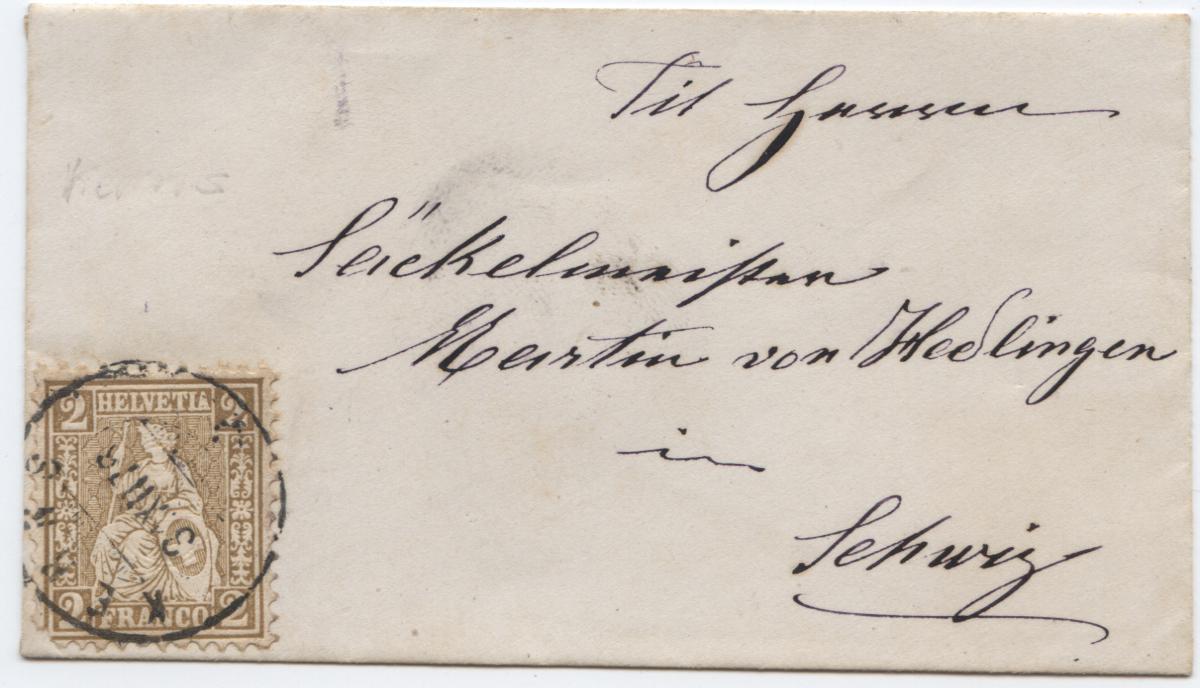 Tit Herrn
Säckelmeister
Martin von Hedlingen
in
Schwiz
2 HELVETIA 2
2 FRANCO 2
KERNS